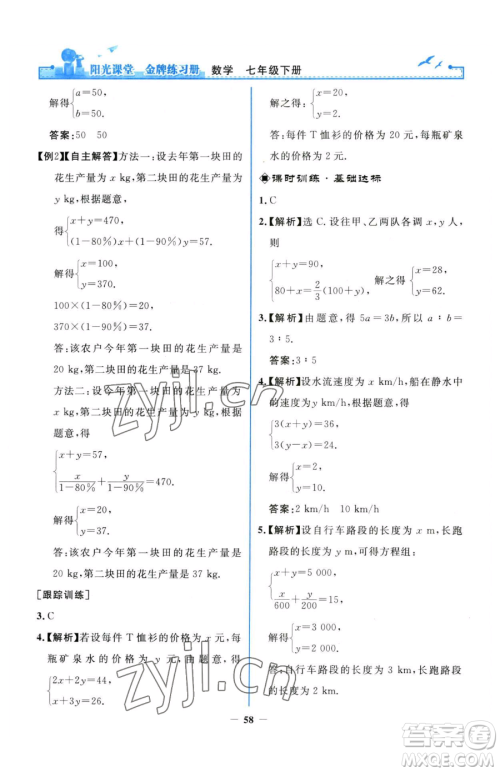 阳光课堂 金牌练习册 数学 七年级下册
解得{a=50,
b=50.
答案:50 50
【例2】【自主解答】方法一:设去年第一块田的
花生产量为 x kg,第二块田的花生产量为
y kg,根据题意,
得{x+y=470,
(1-80%)x+(1-90%)y=57.
解得{x=100,
y=370.
100×(1-80%)=20,
370×(1-90%)=37.
答:该农户今年第一块田的花生产量是
20 kg,第二块田的花生产量是 37 kg.
方法二:设今年第一块田的花生产量为
x kg,第二块田的花生产量为 y kg,根据
题意,得
{x+y=57,
x/(1-80%)+y/(1-90%)=470.
解得{x=20,
y=37.
答:该农户今年第一块田的花生产量是
20 kg,第二块田的花生产量是 37 kg.
[跟踪训练]
3.C
4.【解析】若设每件 T 恤衫的价格为 x 元,每
瓶矿泉水的价格为 y 元,由题意,可得
{2x+2y=44,
x+3y=26.
解之得:{x=20,
y=2.
答:每件 T 恤衫的价格为 20 元,每瓶矿泉
水的价格为 2 元.
课时训练·基础达标
1.C
2.【解析】选 C.设往甲、乙两队各调 x,y 人,
则
{x+y=90,
80+x=2/3(100+y), 解之得{x=28,
y=62.
3.【解析】由题意,得 5a=3b,所以 a∶b=
3∶5.
答案:3∶5
4.【解析】设水流速度为 x km/h,船在静水中
的速度为 y km/h.根据题意,得
{3(x+y)=36,
3(y-x)=24.
解得{x=2,
y=10.
答案:2 km/h 10 km/h
5.【解析】设自行车路段的长度为 x m,长跑
路段的长度为 y m,可得方程组:
{x+y=5 000,
x/600+y/200=15,
解得{x=3 000,
y=2 000.
答:自行车路段的长度为 3 km,长跑路段
的长度为 2 km.
58
zyjl.cn
zyjl.cn
答案圈
MXQE.COM